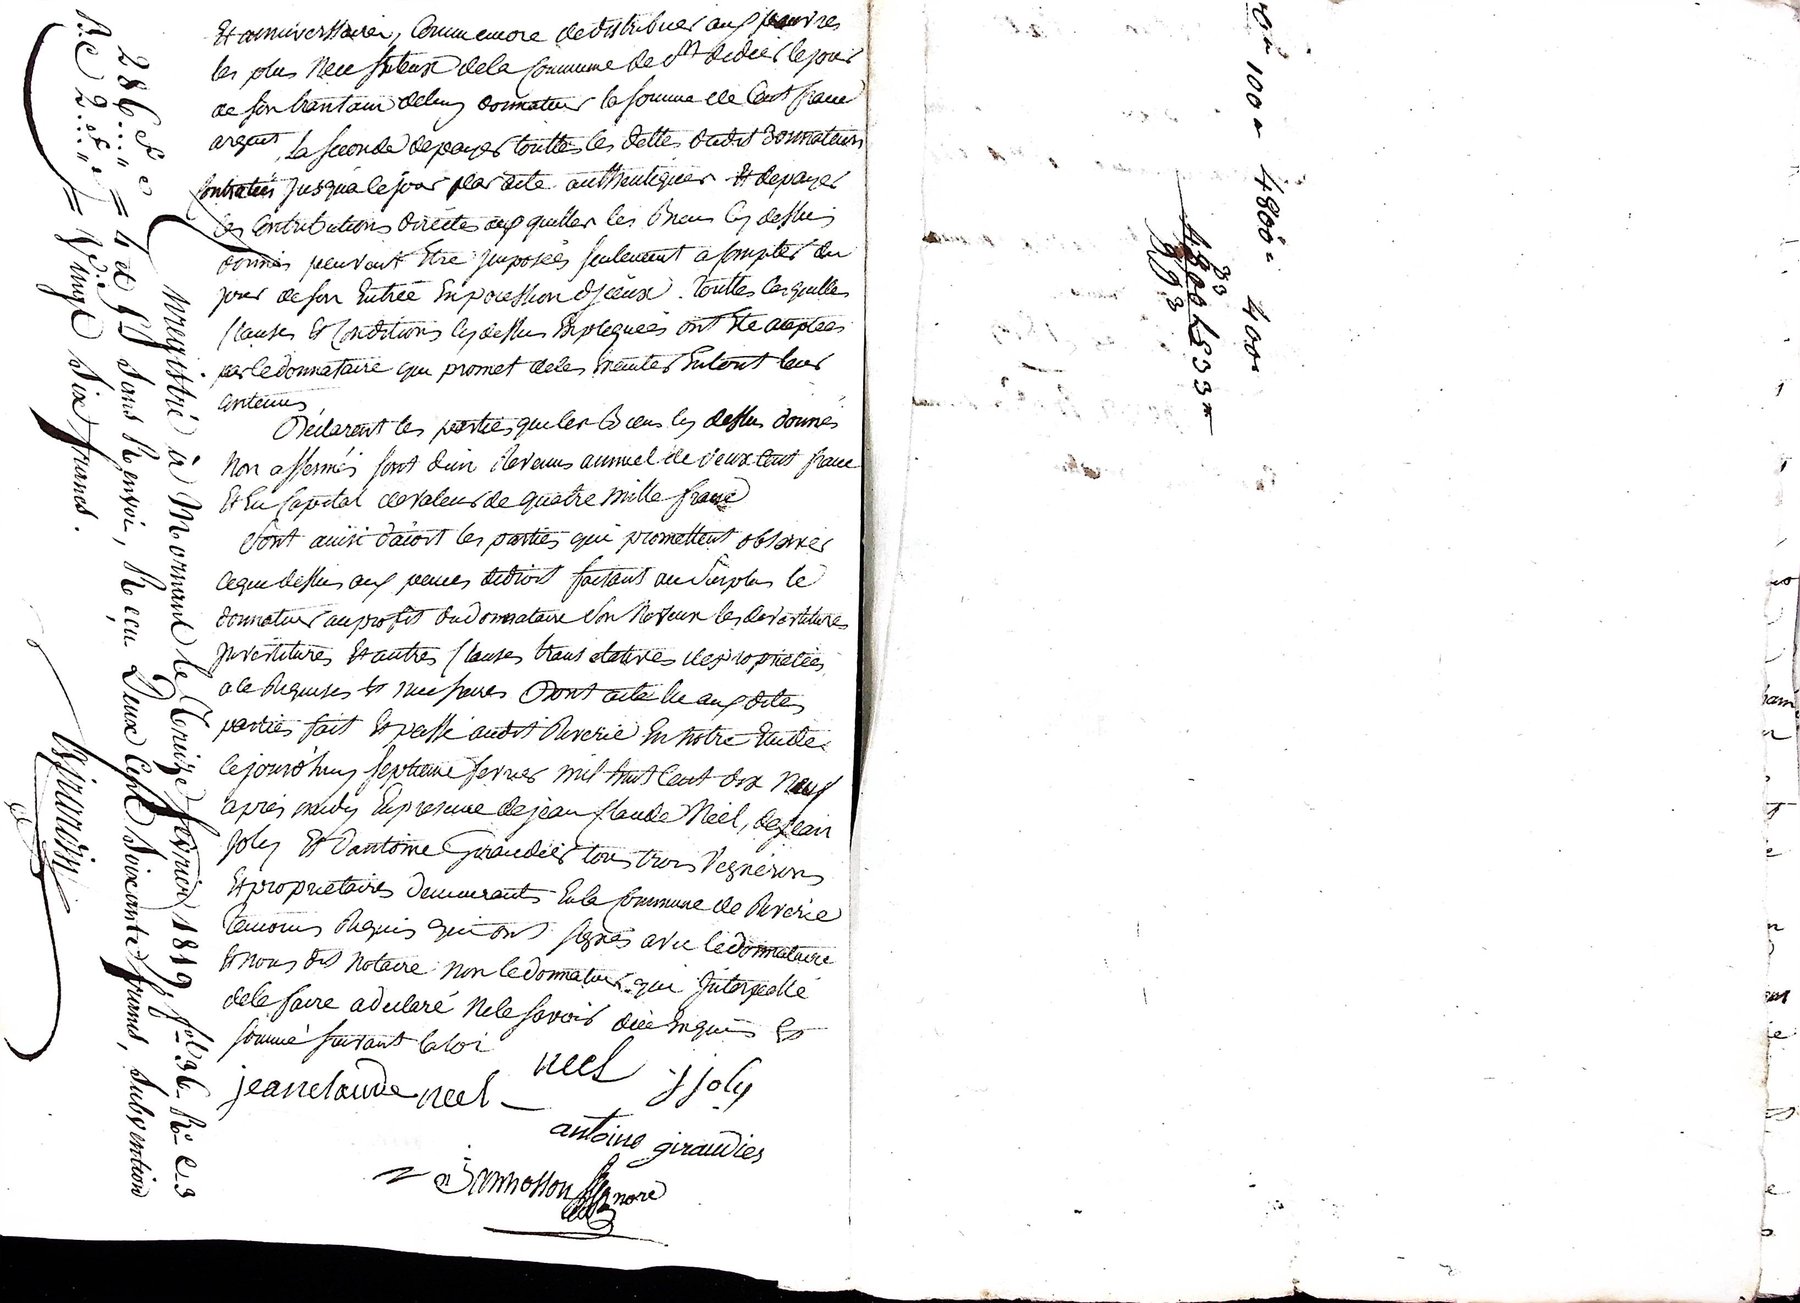 Et anniversaires, Comme encore de distribuer aux pauvres
les plus Necessiteux dela Commune de St didier le jour
de son trantain deluy donnateur la somme de Cent franc
argent, La Seconde depayer touttes les dettes dudit donnateur
Contractés jusqua le jour par acte authentiques Et depayer
les Contributions directes aux quelles les Biens cy dessus
donnés peuvent Etre jmposées seulement a Compter du
jour de son Entrée En pocession djceux. touttes lesquelles
Clauses Et Conditions cy dessus Expliquées ont Eté aceptées
par ledonnataire qui promet deles Executer En tout leur
Contenus
Déclarent les parties que les Biens cy dessus donnés
Non affermés sont dun Revenus annuel de deux Cent franc
Et En Capital de valeur de quatre mille franc
Sont ainsi daccort les parties qui promettent observer
cequi dessus aux peines dedroit faisant au Surplus le
donnateur auprofit dudonnataire Son Neveux les devestitures
jnvestitures Et autres Clauses translatives de proprietées
a ce Requises Et necessaires Dont acte lu aux dites
parties fait Et passé audit Riverie En notre Etude
cejourdhuy septieme fevrier mil huit Cent dix Neuf
après midy En presence de jean Claude Néel, de jean
Joly Et d'antoine Giraudier tous trois Vignerons
Et proprietaires demeurants En la Commune de Riverie
temoins Requis qui ont signés avec ledonnataire
Et nous dit notaire non ledonnateur qui jnterpellé
dele faire a declaré Ne le savoir dece Enquis Et
sommé suivant la loi
neel
jjoly
jeanclaude neel
antoine giraudier
nore
Enregistré à Mornant le Treize fevrier 1819, fol 36 Ro C. 3
4 et 5 Sans Renvoi, Reçu Deux Cent Soixante francs, subvention
Vingt Six francs.
286 f c
100 = 4800 = 400